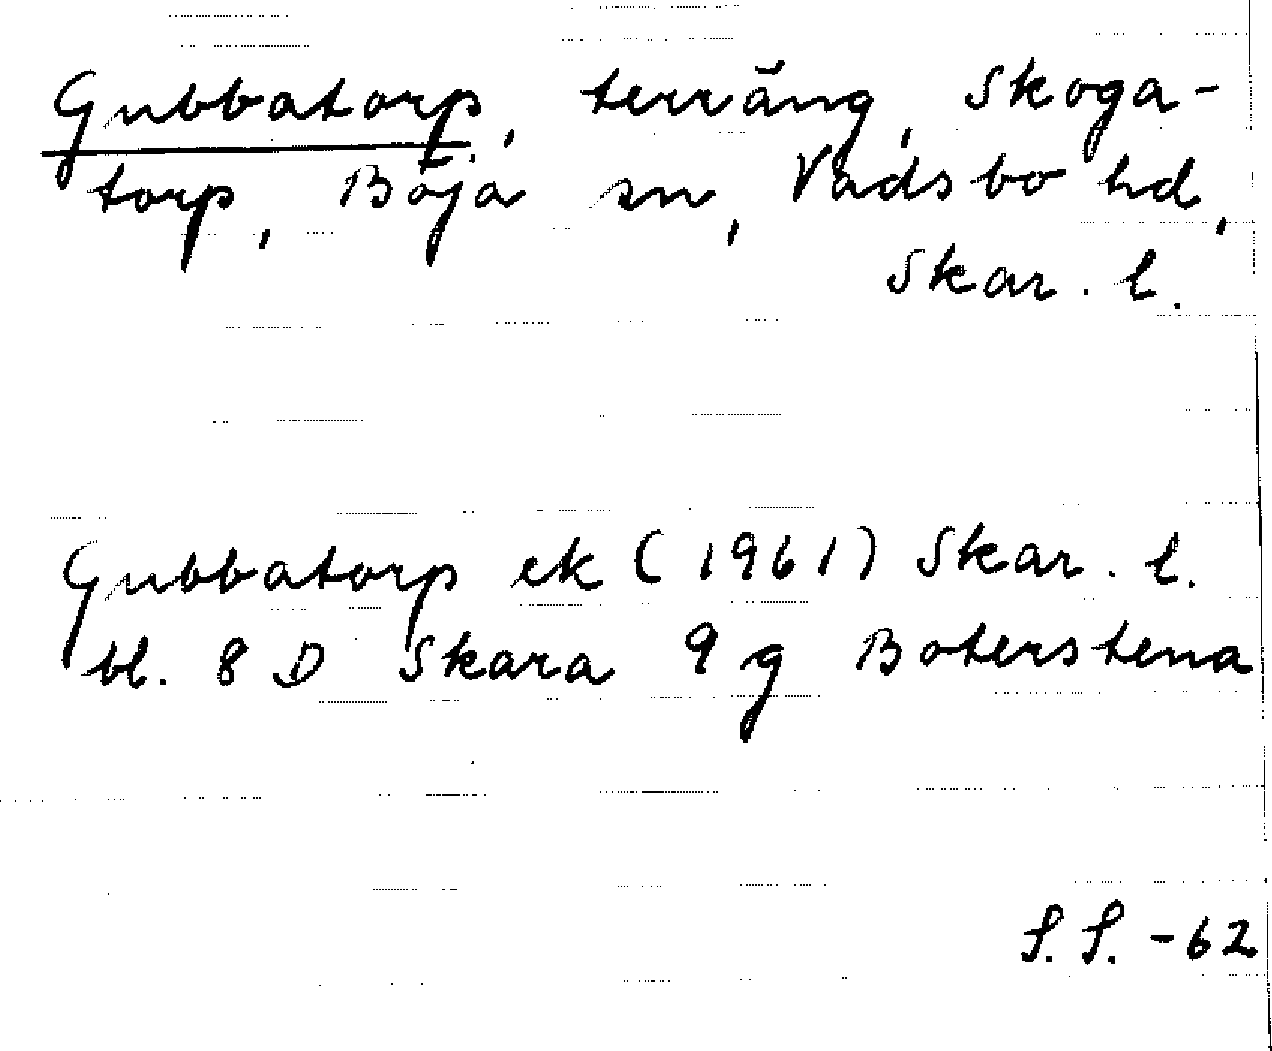 Gubbatorp, terräng, Skoga-
torp, Böja sn, Vadsbo hd,
Skar. l.
Gubbatorp ek (1961) Skar. l.
bl. 8 D Skara 9 g Boterstena
S.S. -62